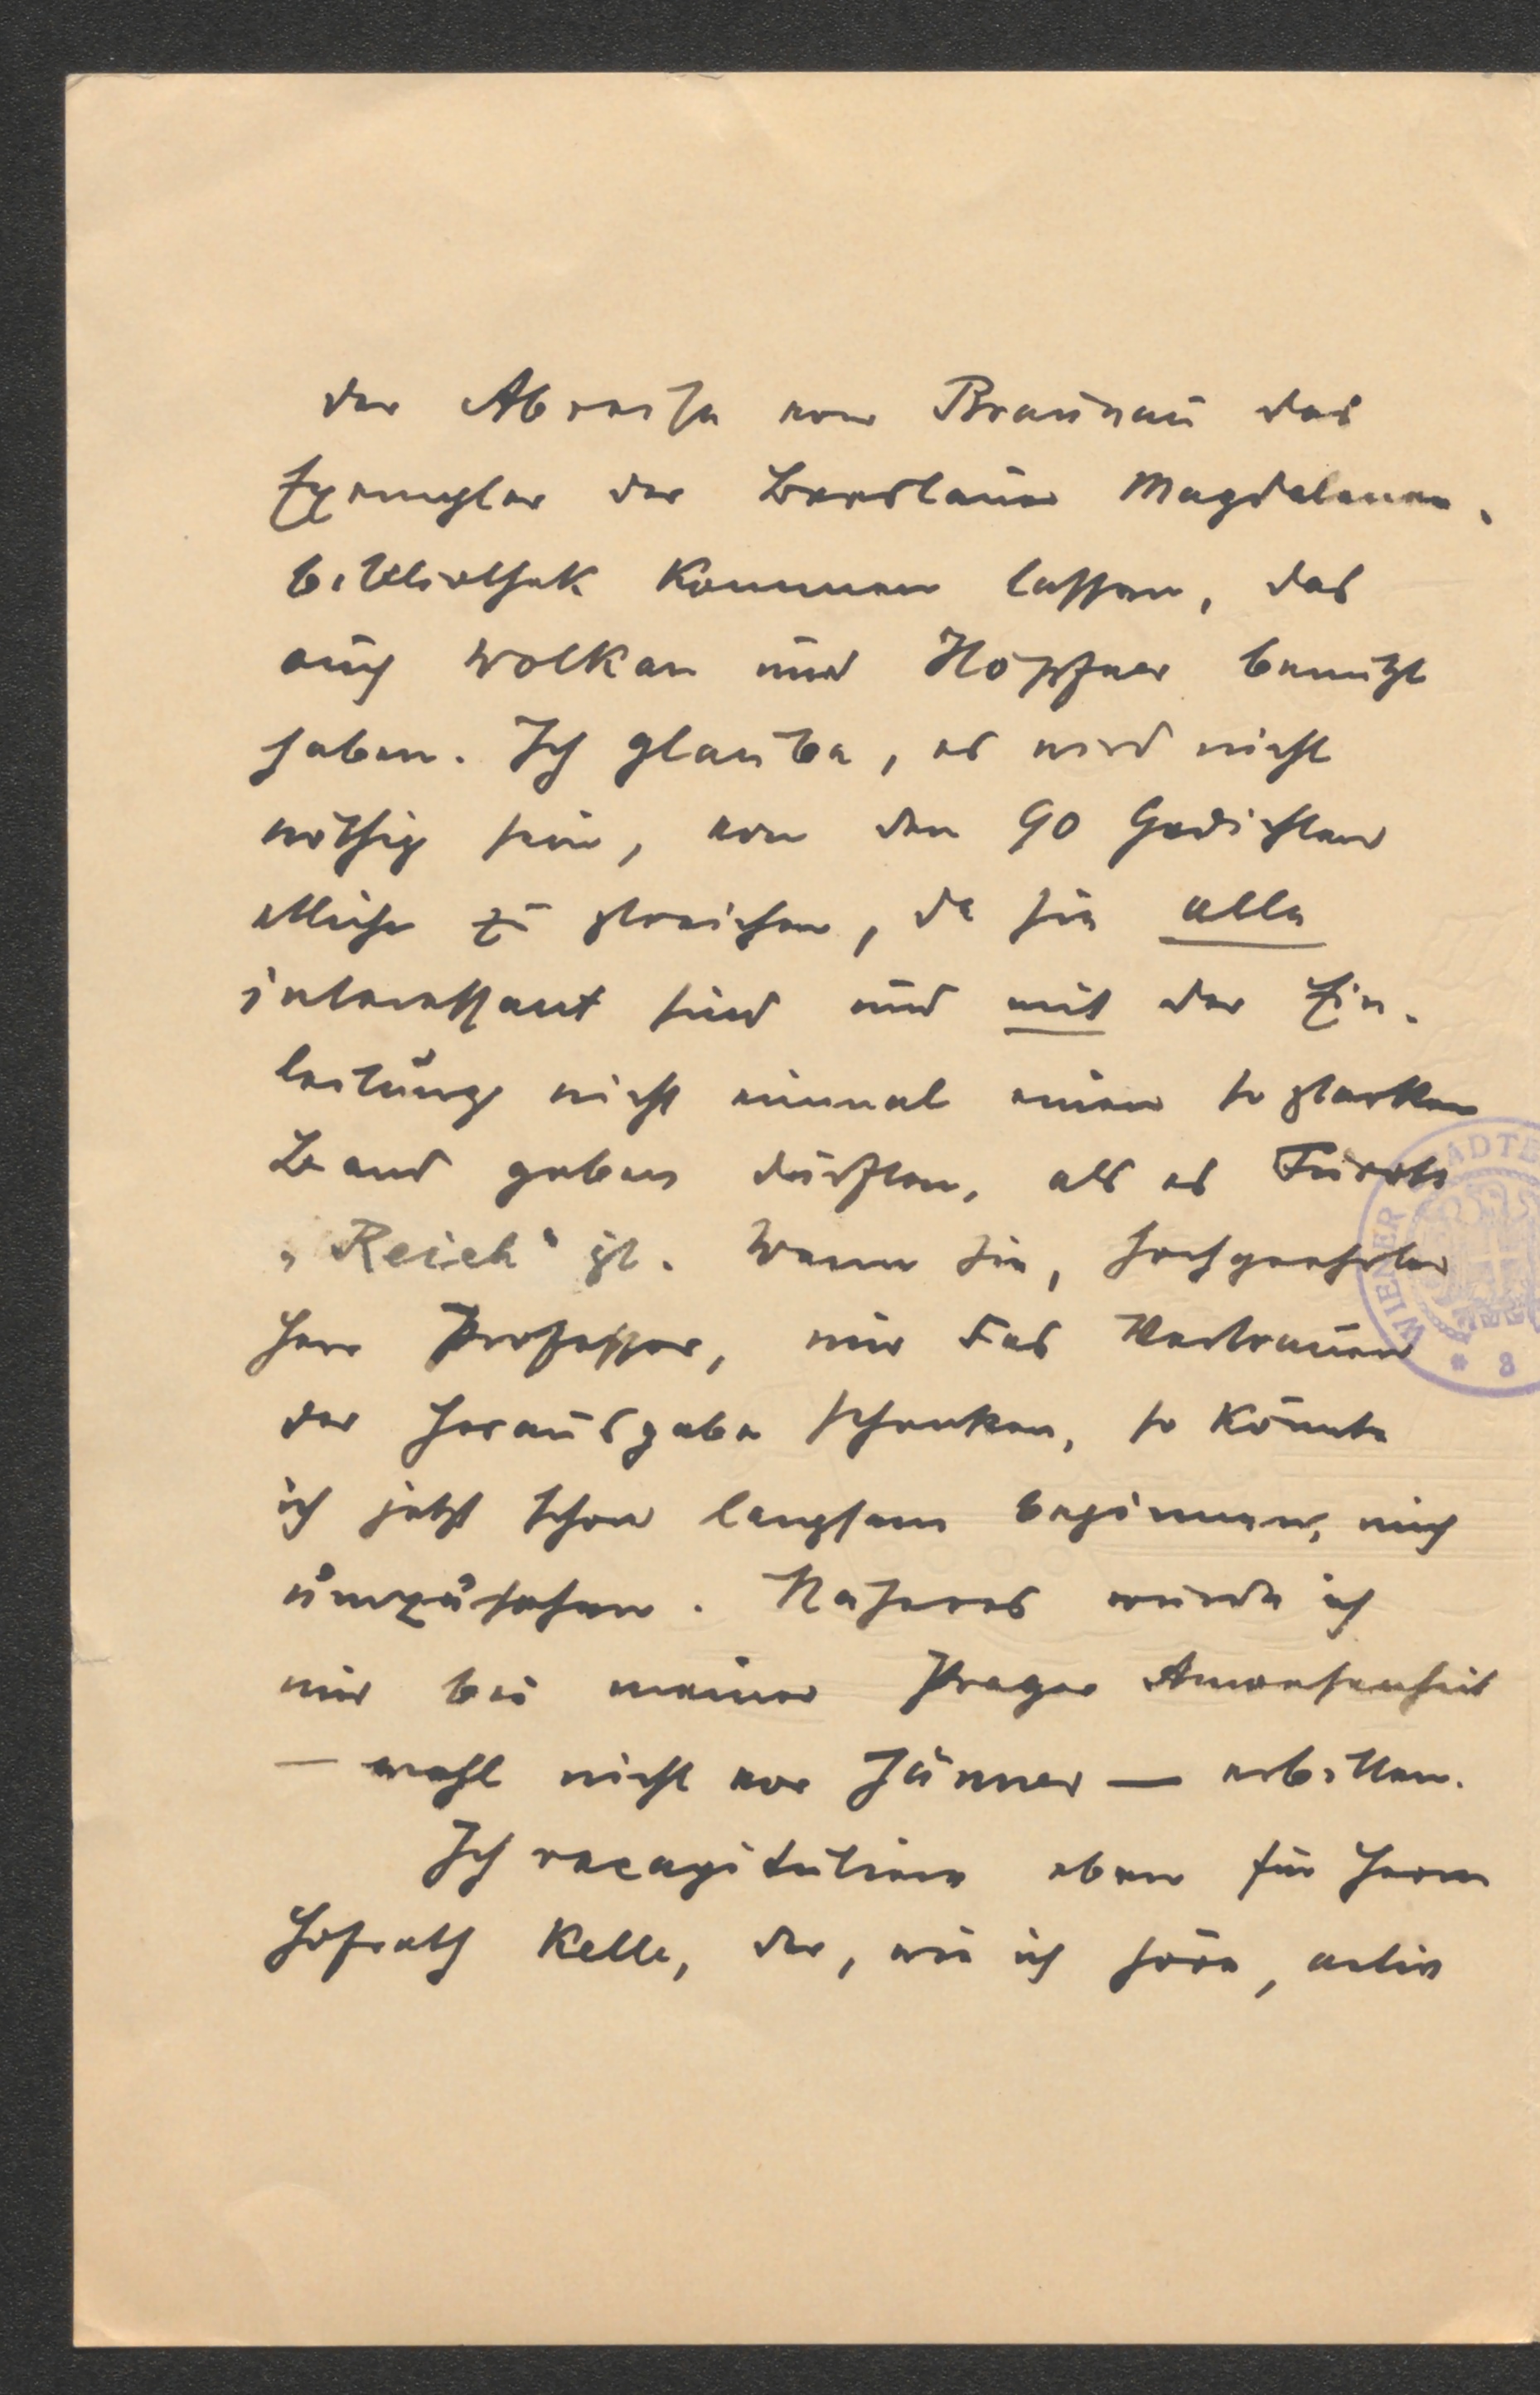 der Abreise von Braunau das
Exemplar der Breslauer Magdalenen-
bibliothek kommen lassen, das
auch Wolkan und Höpfner benützt
haben. Ich glaube, es wird nicht
nöthig sein, von den 90 Gedichten
etliche zu streichen, da sie alle
interessant sind und mit der Ein-
leitung nicht einmal einen so starken
Band geben dürften, als es Fürsts
„Reich“ ist. Wenn Sie, hochgeehrter
Herr Professor, mir das Vertrauen
der Herausgabe schenken, so könnte
ich jetzt schon langsam beginnen, mich
umzusehen. Näheres würde ich
mir bei meiner Prager Anwesenheit
— wohl nicht vor Jänner — erbitten.
Ich recapituliere eben für Herrn
Hofrath Kelle, der, wie ich höre, activ
WIENER STÄDTE
* 8